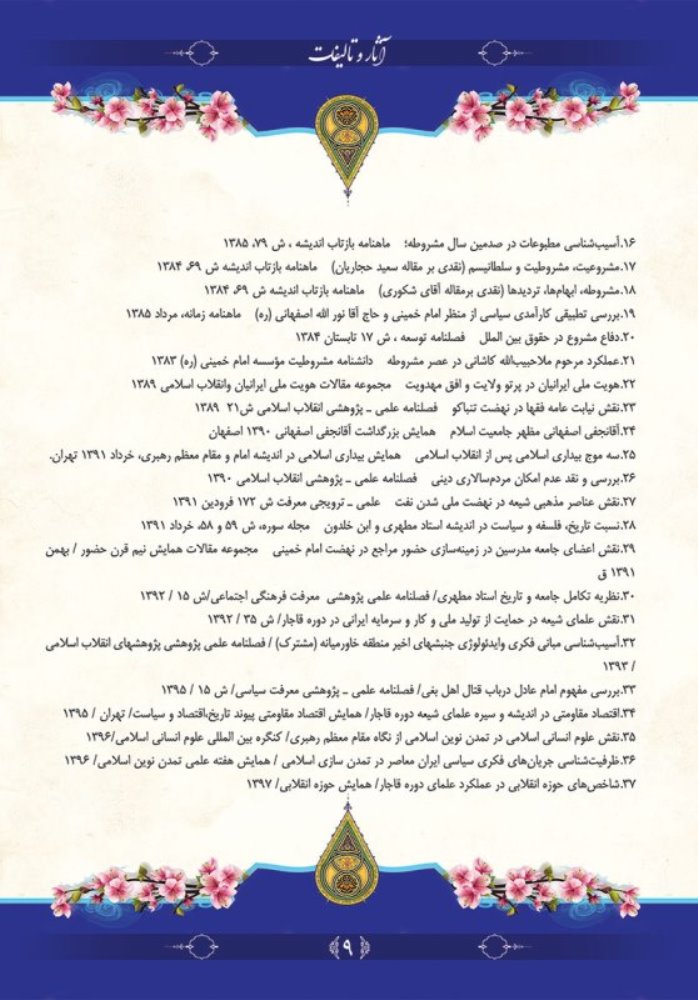 آثار و تالیفات
۱۶.آسیب‌شناسی مطبوعات در صدمین سال مشروطه؛ ماهنامه بازتاب اندیشه ، ش ۷۹، ۱۳۸۵
۱۷.مشروعیت، مشروطیت و سلطانیسم (نقدی بر مقاله سعید حجاریان) ماهنامه بازتاب اندیشه ش ۶۹، ۱۳۸۴
۱۸.مشروطه، ابهام‌ها، تردیدها (نقدی برمقاله آقای شکوری) ماهنامه بازتاب اندیشه ش ۶۹، ۱۳۸۴
۱۹.بررسی تطبیقی کارآمدی سیاسی از منظر امام خمینی و حاج آقا نور الله اصفهانی (ره) ماهنامه زمانه، مرداد ۱۳۸۵
۲۰.دفاع مشروع در حقوق بین الملل فصلنامه توسعه ، ش ۱۷ تابستان ۱۳۸۴
۲۱.عملکرد مرحوم ملاحبیب‌الله کاشانی در عصر مشروطه دانشنامه مشروطیت مؤسسه امام خمینی (ره) ۱۳۸۳
۲۲.هویت ملی ایرانیان در پرتو ولایت و افق مهدویت مجموعه مقالات هویت ملی ایرانیان وانقلاب اسلامی ۱۳۸۹
۲۳.نقش نیابت عامه فقها در نهضت تنباکو فصلنامه علمی ـ پژوهشی انقلاب اسلامی ش۲۱ ۱۳۸۹
۲۴.آقانجفی اصفهانی مظهر جامعیت اسلام همایش بزرگداشت آقانجفی اصفهانی ۱۳۹۰ اصفهان
۲۵.سه موج بیداری اسلامی پس از انقلاب اسلامی همایش بیداری اسلامی در اندیشه امام و مقام معظم رهبری، خرداد ۱۳۹۱ تهران.
۲۶.بررسی و نقد عدم امکان مردم‌سالاری دینی فصلنامه علمی ـ پژوهشی انقلاب اسلامی ۱۳۹۰
۲۷.نقش عناصر مذهبی شیعه در نهضت ملی شدن نفت علمی ـ ترویجی معرفت ش ۱۷۲ فرودین ۱۳۹۱
۲۸.نسبت تاریخ، فلسفه و سیاست در اندیشه استاد مطهری و ابن خلدون مجله سوره، ش ۵۹ و ۵۸، خرداد ۱۳۹۱
۲۹.نقش اعضای جامعه مدرسین در زمینه‌سازی حضور مراجع در نهضت امام خمینی مجموعه مقالات همایش نیم قرن حضور / بهمن
۱۳۹۱ ق
۳۰.نظریه تکامل جامعه و تاریخ استاد مطهری/ فصلنامه علمی پژوهشی معرفت فرهنگی اجتماعی/ش ۱۵ / ۱۳۹۲
۳۱.نقش علمای شیعه در حمایت از تولید ملی و کار و سرمایه ایرانی در دوره قاجار/ ش ۳۵ / ۱۳۹۲
۳۲.آسیب‌شناسی مبانی فکری وایدئولوژی جنبشهای اخیر منطقه خاورمیانه (مشترک) / فصلنامه علمی پژوهشی پژوهشهای انقلاب اسلامی
/ ۱۳۹۳
۳۳.بررسی مفهوم امام عادل درباب قتال اهل بغی/ فصلنامه علمی ـ پژوهشی معرفت سیاسی/ ش ۱۵ / ۱۳۹۵
۳۴.اقتصاد مقاومتی در اندیشه و سیره علمای شیعه دوره قاجار/ همایش اقتصاد مقاومتی پیوند تاریخ،اقتصاد و سیاست/ تهران / ۱۳۹۵
۳۵.نقش علوم انسانی اسلامی در تمدن نوین اسلامی از نگاه مقام معظم رهبری/ کنگره بین المللی علوم انسانی اسلامی/۱۳۹۶
۳۶.ظرفیت‌شناسی جریان‌های فکری سیاسی ایران معاصر در تمدن سازی اسلامی / همایش هفته علمی تمدن نوین اسلامی/ ۱۳۹۶
۳۷.شاخص‌های حوزه انقلابی در عملکرد علمای دوره قاجار/ همایش حوزه انقلابی/ ۱۳۹۷
۹